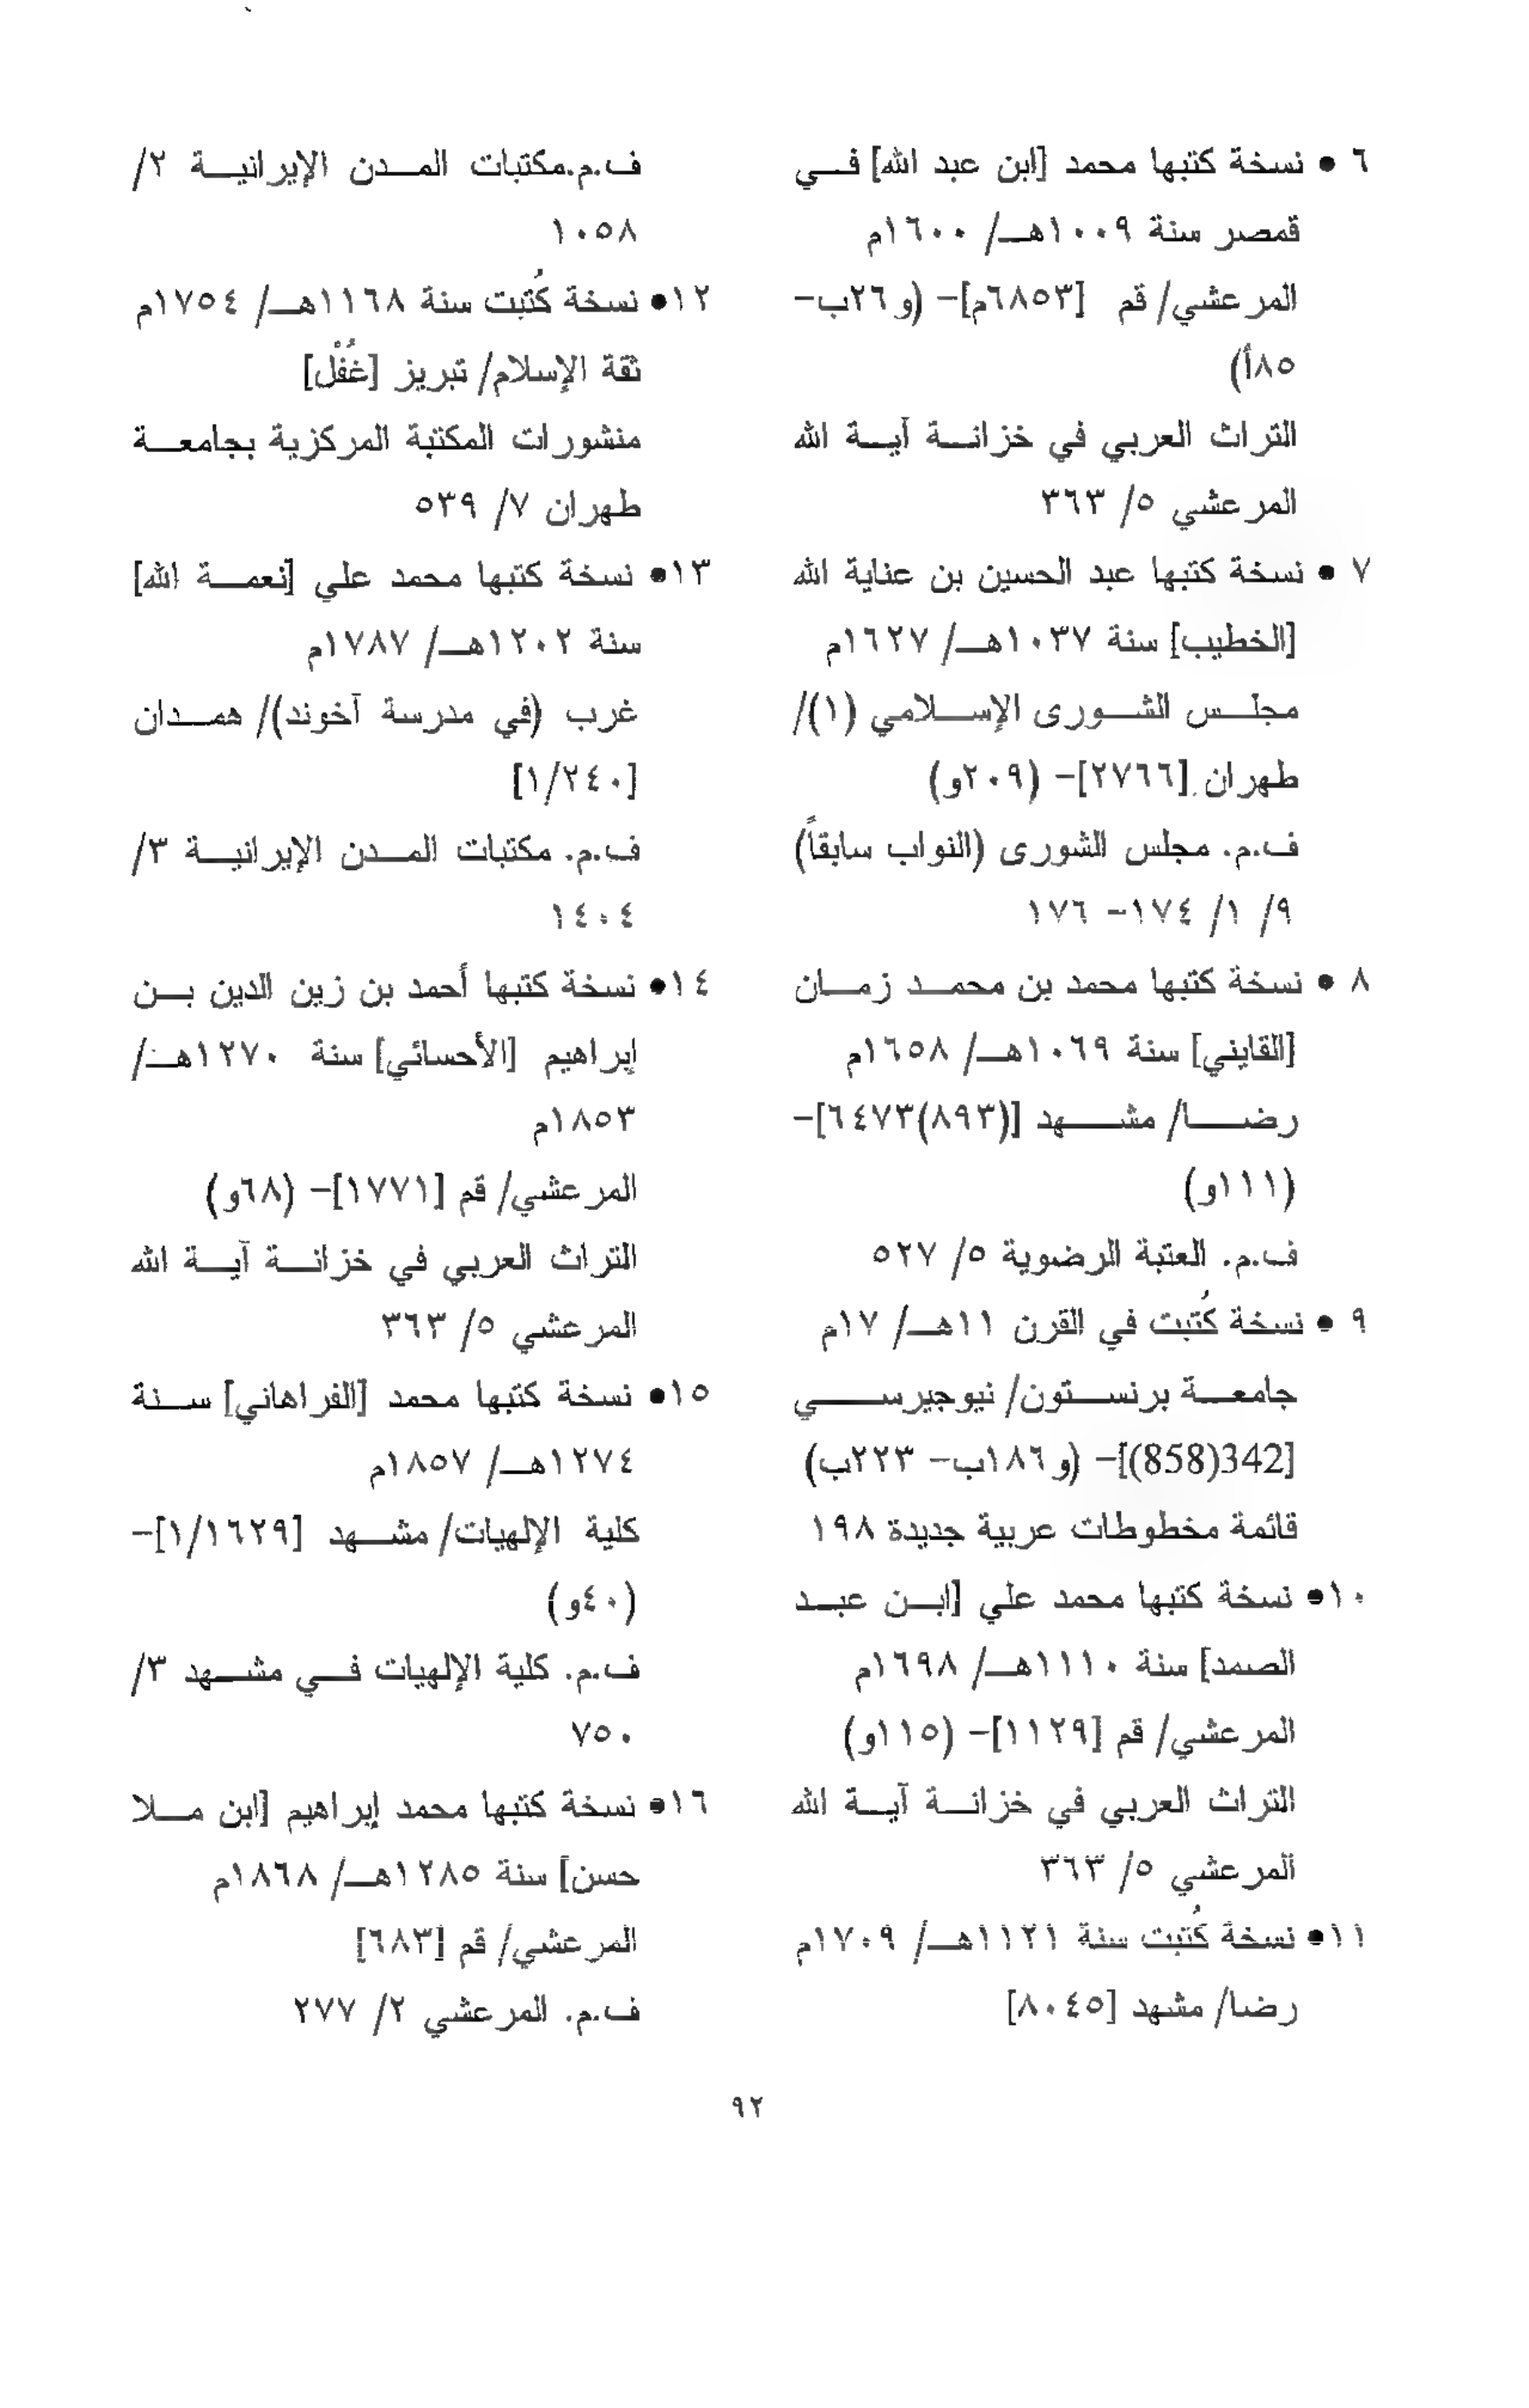 ٦ • نسخة كتبها محمد [ابن عبد الله] في
قمصر سنة ١٠٠٩هـ/ ١٦٠٠م
المرعشي/ قم [٦٨٥٣م]- (و٢٦ب-
٨٥أ)
التراث العربي في خزانة آية الله
المرعشي ٥/ ٣٦٣
٧ • نسخة كتبها عبد الحسين بن عناية الله
[الخطيب] سنة ١٠٣٧هـ/ ١٦٢٧م
مجلس الشورى الإسلامي (١)/
طهران [٢٧٦٦]- (٢٠٩و)
ف.م. مجلس الشورى (النواب سابقاً)
٩/ ١/ ١٧٤- ١٧٦
٨ • نسخة كتبها محمد بن محمد زمان
[القايني] سنة ١٠٦٩هـ/ ١٦٥٨م
رضا/ مشهد [(٨٩٣)٦٤٧٣]-
(١١١و)
ف.م. العتبة الرضوية ٥/ ٥٢٧
٩ • نسخة كُتبت في القرن ١١هـ/ ١٧م
جامعة برنستون/ نيوجيرسي
[342(858)]- (و١٨٦ب- ٢٢٣ب)
قائمة مخطوطات عربية جديدة ١٩٨
١٠• نسخة كتبها محمد علي [ابن عبد
الصمد] سنة ١١١٠هـ/ ١٦٩٨م
المرعشي/ قم [١١٢٩]- (١١٥و)
التراث العربي في خزانة آية الله
المرعشي ٥/ ٣٦٣
١١• نسخة كُتبت سنة ١١٢١هـ/ ١٧٠٩م
رضا/ مشهد [٨٠٤٥]
ف.م.مكتبات المدن الإيرانية ٢/
١٠٥٨
١٢• نسخة كُتبت سنة ١١٦٨هـ/ ١٧٥٤م
ثقة الإسلام/ تبريز [غُفْل]
منشورات المكتبة المركزية بجامعة
طهران ٧/ ٥٣٩
١٣• نسخة كتبها محمد علي [نعمة الله]
سنة ١٢٠٢هـ/ ١٧٨٧م
غرب (في مدرسة آخوند)/ همدان
[١/٢٤٠]
ف.م. مكتبات المدن الإيرانية ٣/
١٤٠٤
١٤• نسخة كتبها أحمد بن زين الدين بن
إبراهيم [الأحسائي] سنة ١٢٧٠هـ/
١٨٥٣م
المرعشي/ قم [١٧٧١]- (٦٨و)
التراث العربي في خزانة آية الله
المرعشي ٥/ ٣٦٣
١٥• نسخة كتبها محمد [الفراهاني] سنة
١٢٧٤هـ/ ١٨٥٧م
كلية الإلهيات/ مشهد [١/١٦٢٩]-
(٤٠و)
ف.م. كلية الإلهيات في مشهد ٣/
٧٥٠
١٦• نسخة كتبها محمد إبراهيم [ابن ملا
حسن] سنة ١٢٨٥هـ/ ١٨٦٨م
المرعشي/ قم [٦٨٣]
ف.م. المرعشي ٢/ ٢٧٧
٩٢